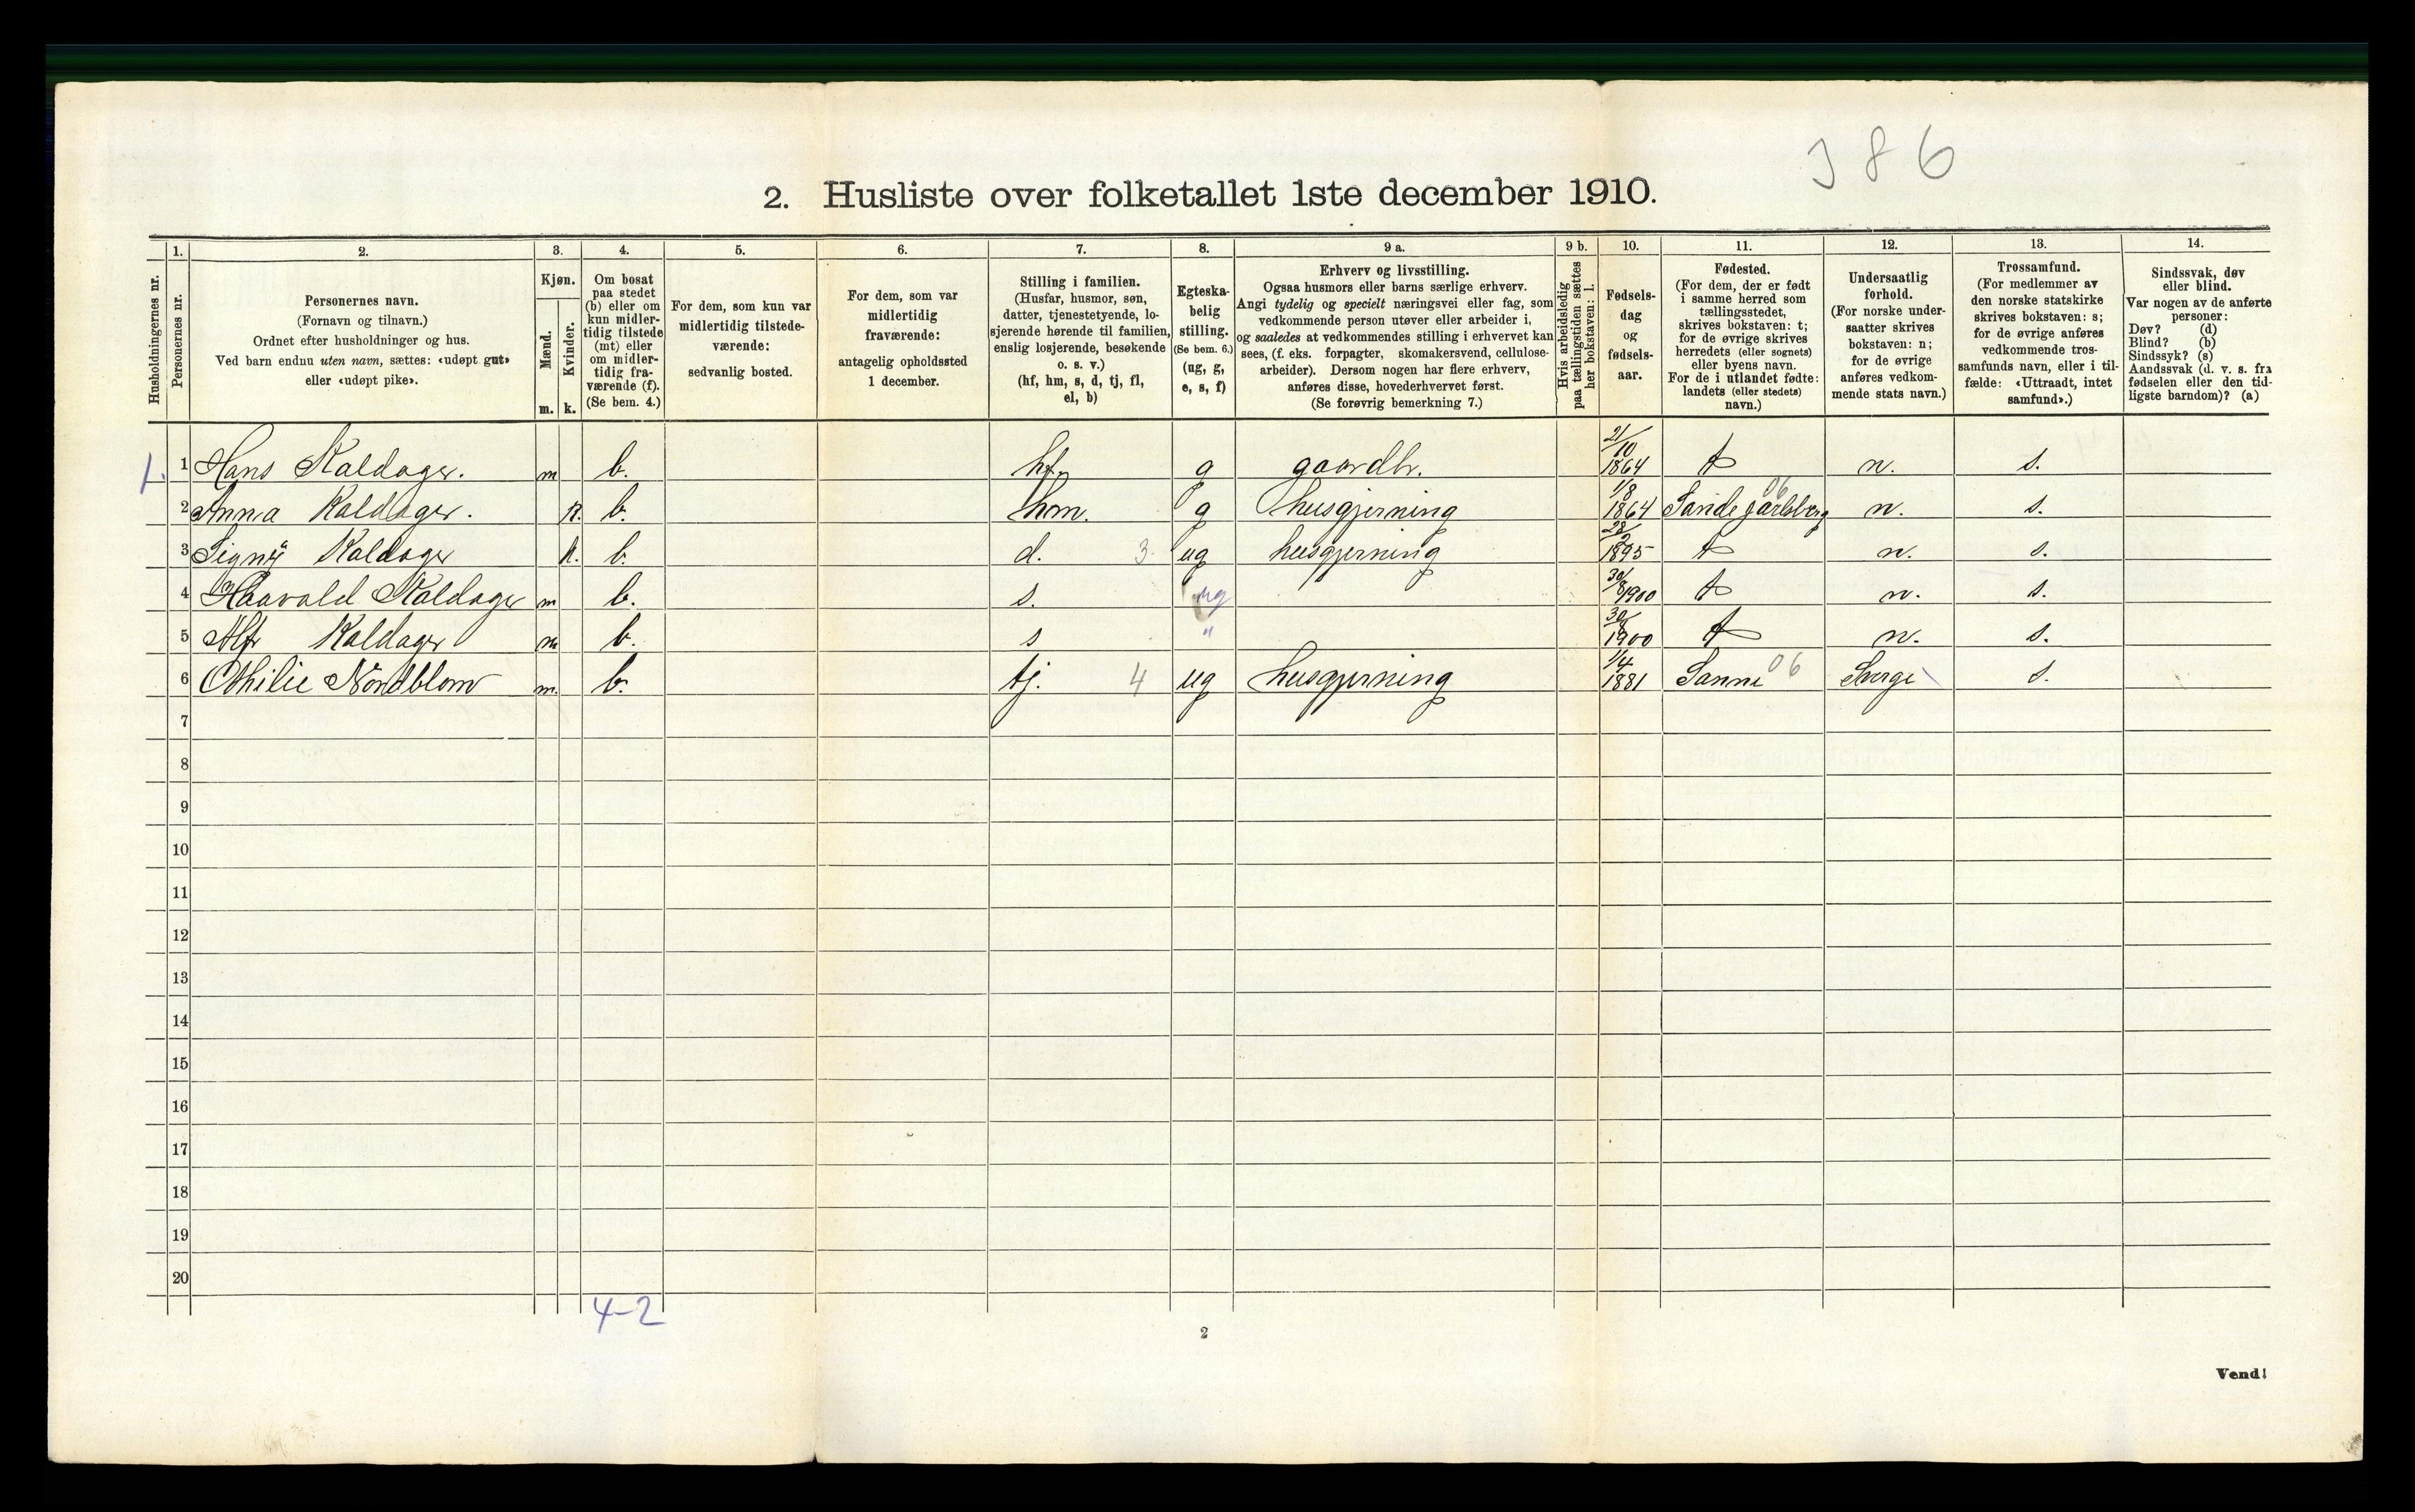 386
2. Husliste over folketallet 1ste december 1910.
Husholdningernes nr.
1.
Personernes nr.
2.
Personernes navn.
(Fornavn og tilnavn.)
Ordnet efter husholdninger og hus.
Ved barn endnu uten navn, sættes: «udøpt gut»
eller «udøpt pike».
3.
Kjøn.
Mænd.
Kvinder.
m. k.
4.
Om bosat
paa stedet
(b) eller om
kun midler-
tidig tilstede
(mt) eller
om midler-
tidig fra-
værende (f).
(Se bem. 4.)
5.
For dem, som kun var
midlertidig tilstede-
værende:
sedvanlig bosted.
6.
For dem, som var
midlertidig
fraværende:
antagelig opholdssted
1 december.
7.
Stilling i familien.
(Husfar, husmor, søn,
datter, tjenestetyende, lo-
sjerende hørende til familien,
enslig losjerende, besøkende
o. s. v.)
(hf, hm, s, d, tj, fl,
el, b)
8.
Egteska-
belig
stilling.
(Se bem. 6.)
(ug, g,
e, s, f)
9 a.
Erhverv og livsstilling.
Ogsaa husmors eller barns særlige erhverv.
Angi tydelig og specielt næringsvei eller fag, som
vedkommende person utøver eller arbeider i,
og saaledes at vedkommendes stilling i erhvervet kan
sees, (f. eks. forpagter, skomakersvend, cellulose-
arbeider). Dersom nogen har flere erhverv,
anføres disse, hovederhvervet først.
(Se forøvrig bemerkning 7.)
9 b.
Hvis arbeidsledig
paa tællingstiden sættes
her bokstaven: l.
10.
Fødsels-
dag
og
fødsels-
aar.
11.
Fødested.
(For dem, der er født
i samme herred som
tællingsstedet,
skrives bokstaven: t;
for de øvrige skrives
herredets (eller sognets)
eller byens navn.
For de i utlandet fødte:
landets (eller stedets)
navn.)
12.
Undersaatlig
forhold.
(For norske under-
saatter skrives
bokstaven: n;
for de øvrige
anføres vedkom-
mende stats navn.)
13.
Trossamfund.
(For medlemmer av
den norske statskirke
skrives bokstaven: s;
for de øvrige anføres
vedkommende tros-
samfunds navn, eller i til-
fælde: «Uttraadt, intet
samfund».)
14.
Sindssvak, døv
eller blind.
Var nogen av de anførte
personer:
Døv? (d)
Blind? (b)
Sindssyk? (s)
Aandssvak (d. v. s. fra
fødselen eller den tid-
ligste barndom)? (a)
1. 1 Hans Kaldager. m b. hf. g gaardbr. 21/10 1864 t n. s.
2 Anna Kaldager. k. b. hm. g husgjerning 1/8 1864 Sande Jarlsberg 06 n. s.
3 Signý Kaldager k. b. d. 3 ug husgjerning 1895 t n. s.
4 Haavald Kaldager m b. s. ug 30/8 1900 t n. s.
5 Alf Kaldager m b. s " 30/8 1900 t n. s.
6 Othilie Nordblom m. b. tj. 4 ug husgjerning 1/4 1881 Sanne 06 Sverge s.
7
8
9
10
11
12
13
14
15
16
17
18
19
20
4-2
2
Vend!